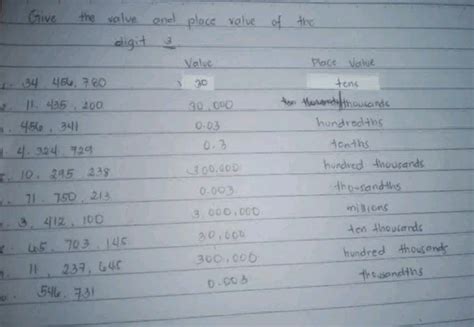 Give the value and place value of the
digit 3
Value Place Value
34 456, 780 30 tens
11. 435, 200 30,000 ten thousands/thousands
456, 341 0.03 hundredths
4. 324, 729 0.3 tenths
10. 295 238 300,000 hundred thousands
71. 750, 213 0.003 thousandths
3, 412, 100 3,000,000 millions
45, 703, 145 30,000 ten thousands
11, 237, 645 300,000 hundred thousands
546, 731 0.003 thousandths